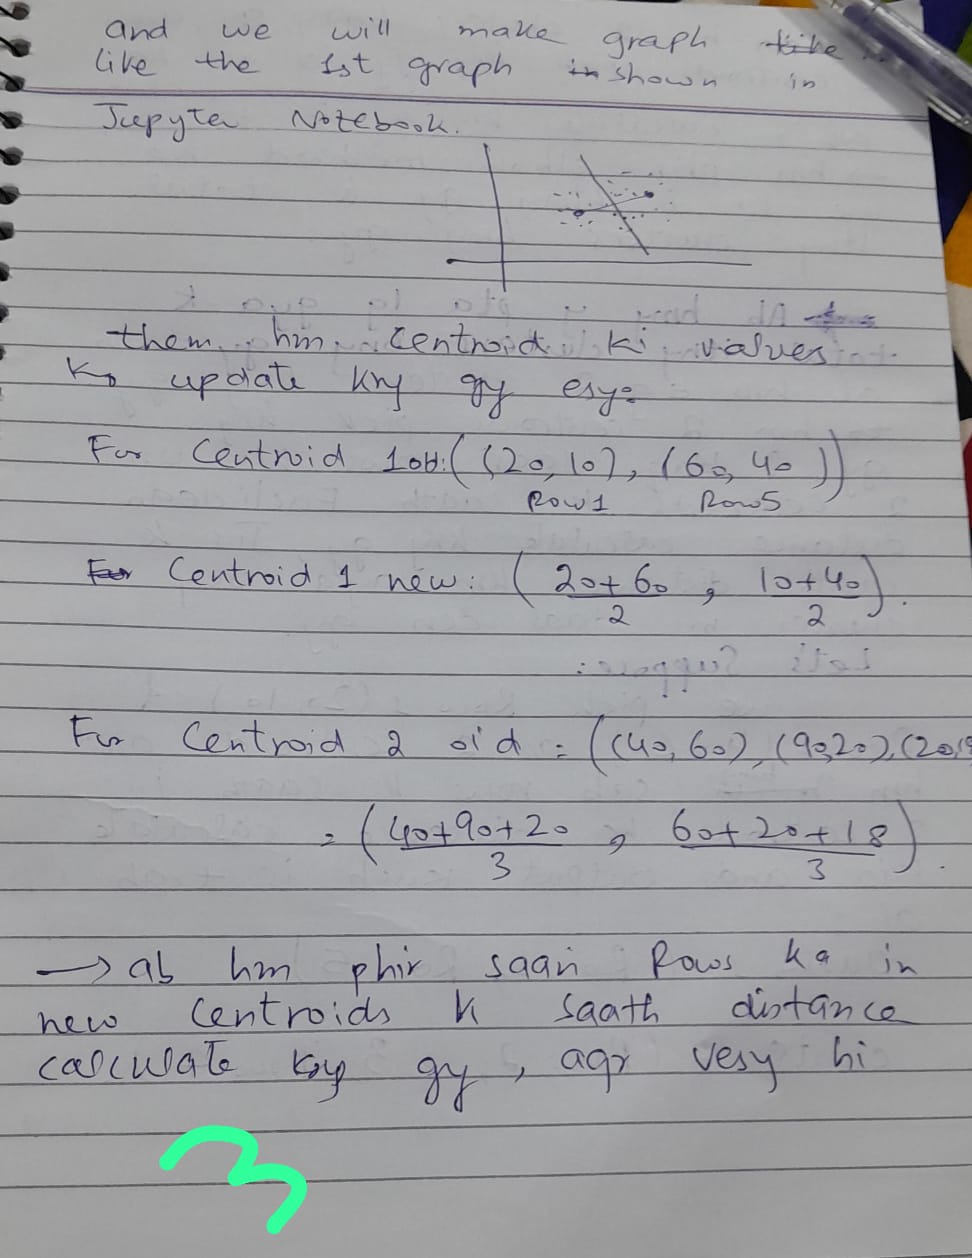 and we will make graph
like the 1st graph shown in
Jupyter Notebook.
them hm centroid ki values
Ko update kry gy esy:
For Centroid 1 old: ((20,10), (60,40))
Row1 Row5
Centroid 1 new: (20+60/2 , 10+40/2).
For Centroid 2 old = ((40,60), (90,20), (20,18
= (40+90+20/3 , 60+20+18/3).
→ ab hm phir saari Rows ka in
new Centroids k saath distance
calculate kry gy, agr vesy hi
3